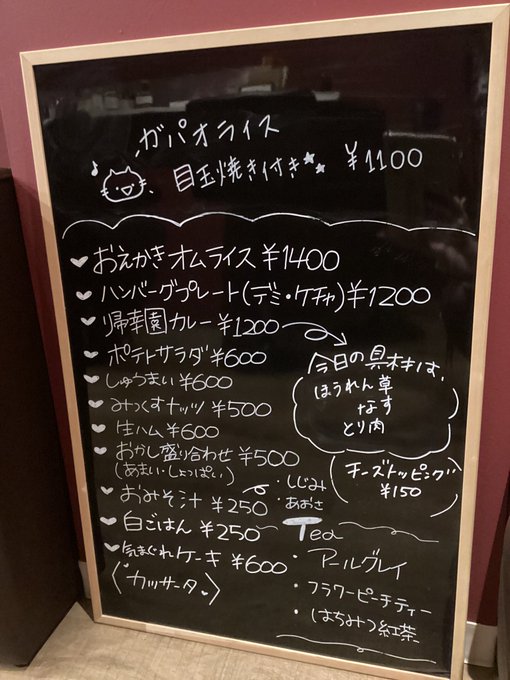 ガパオライス
目玉焼き付き ¥1100
おえかきオムライス ¥1400
ハンバーグプレート(デミ・ケチャ) ¥1200
帰幸園カレー ¥1200
ポテトサラダ ¥600
しゅうまい ¥600
みっくすナッツ ¥500
生ハム ¥600
おかし盛り合わせ ¥500
(あまい・しょっぱい)
おみそ汁 ¥250
・しじみ
・あおさ
白ごはん ¥250
気まぐれケーキ ¥600
〈カッサータ〉
今日の具材は、
ほうれん草
なす
とり肉
チーズトッピング
¥150
Tea
・アールグレイ
・フラワーピーチティー
・はちみつ紅茶